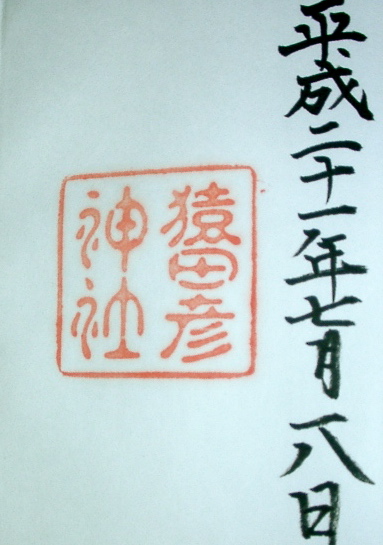 平成二十一年七月一八日
猿田彦
神社